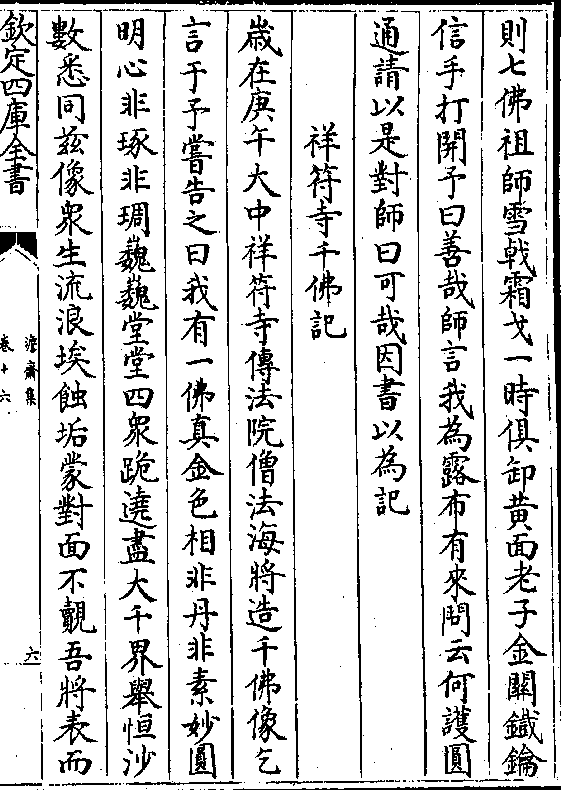 則七佛祖師雪戟霜戈一時俱卸黃面老子金關鐵鑰
信手打開予曰善哉師言我為露布有來問云何護圓
通請以是對師曰可哉因書以為記
祥符寺千佛記
歲在庚午大中祥符寺傳法院僧法海將造千佛像乞
言于予嘗告之曰我有一佛真金色相非丹非素妙圓
明心非琢非琱巍巍堂堂四眾跪遶盡大千界舉恒沙
數悉同茲像眾生流浪埃蝕垢蒙對面不覿吾將表而
欽定四庫全書
澹齋集
卷十六
六